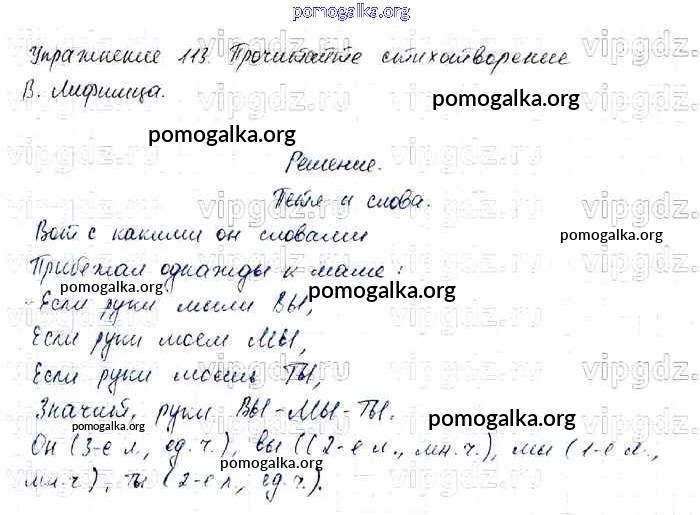 pomogalka.org
Упражнение 113. Прочитайте стихотворение
В. Лифшица.
pomogalka.org
pomogalka.org
Решение.
Петя и слова.
Вот с какими он словами
pomogalka.org
Прибежал однажды к маме:
pomogalka.org
pomogalka.org
-Если руки мыли ВЫ,
Если руки моем МЫ,
Если руки моешь ТЫ,
pomogalka.org
Значит, руки ВЫ-МЫ-ТЫ.
pomogalka.org
Он (3-е л., ед.ч.), вы ((2-е л., мн.ч.), мы (1-е л.,
pomogalka.org
мн.ч.), ты (2-е л., ед.ч.).